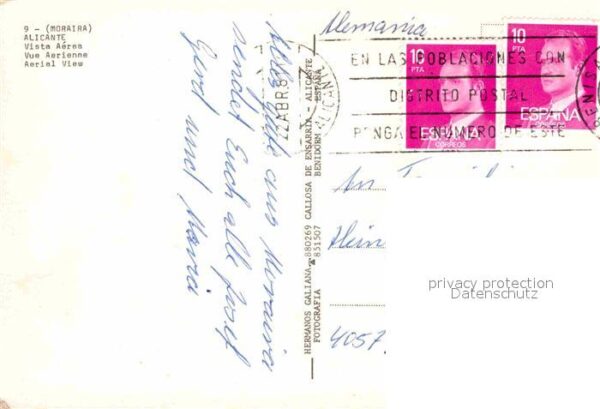 9 - (MORAIRA)
ALICANTE
Vista Aérea
Vue Aerienne
Aerial View
Alemania
10
PTA
ESPAÑA
CORREOS
10
PTA
ESPAÑA
CORREOS
EN LAS POBLACIONES CON
DISTRITO POSTAL
PONGA EL NUMERO DE ESTE
22 ABR.8
ALICANTE
aus Moraira
sendet Euch alle Josef
Gerd und Maria
HERMANOS GALIANA. 880269 CALLOSA DE ENSARRIA - ALICANTE
FOTOGRAFIA 851507 BENIDORM ESPAÑA
An
Hein
4057
privacy protection
Datenschutz